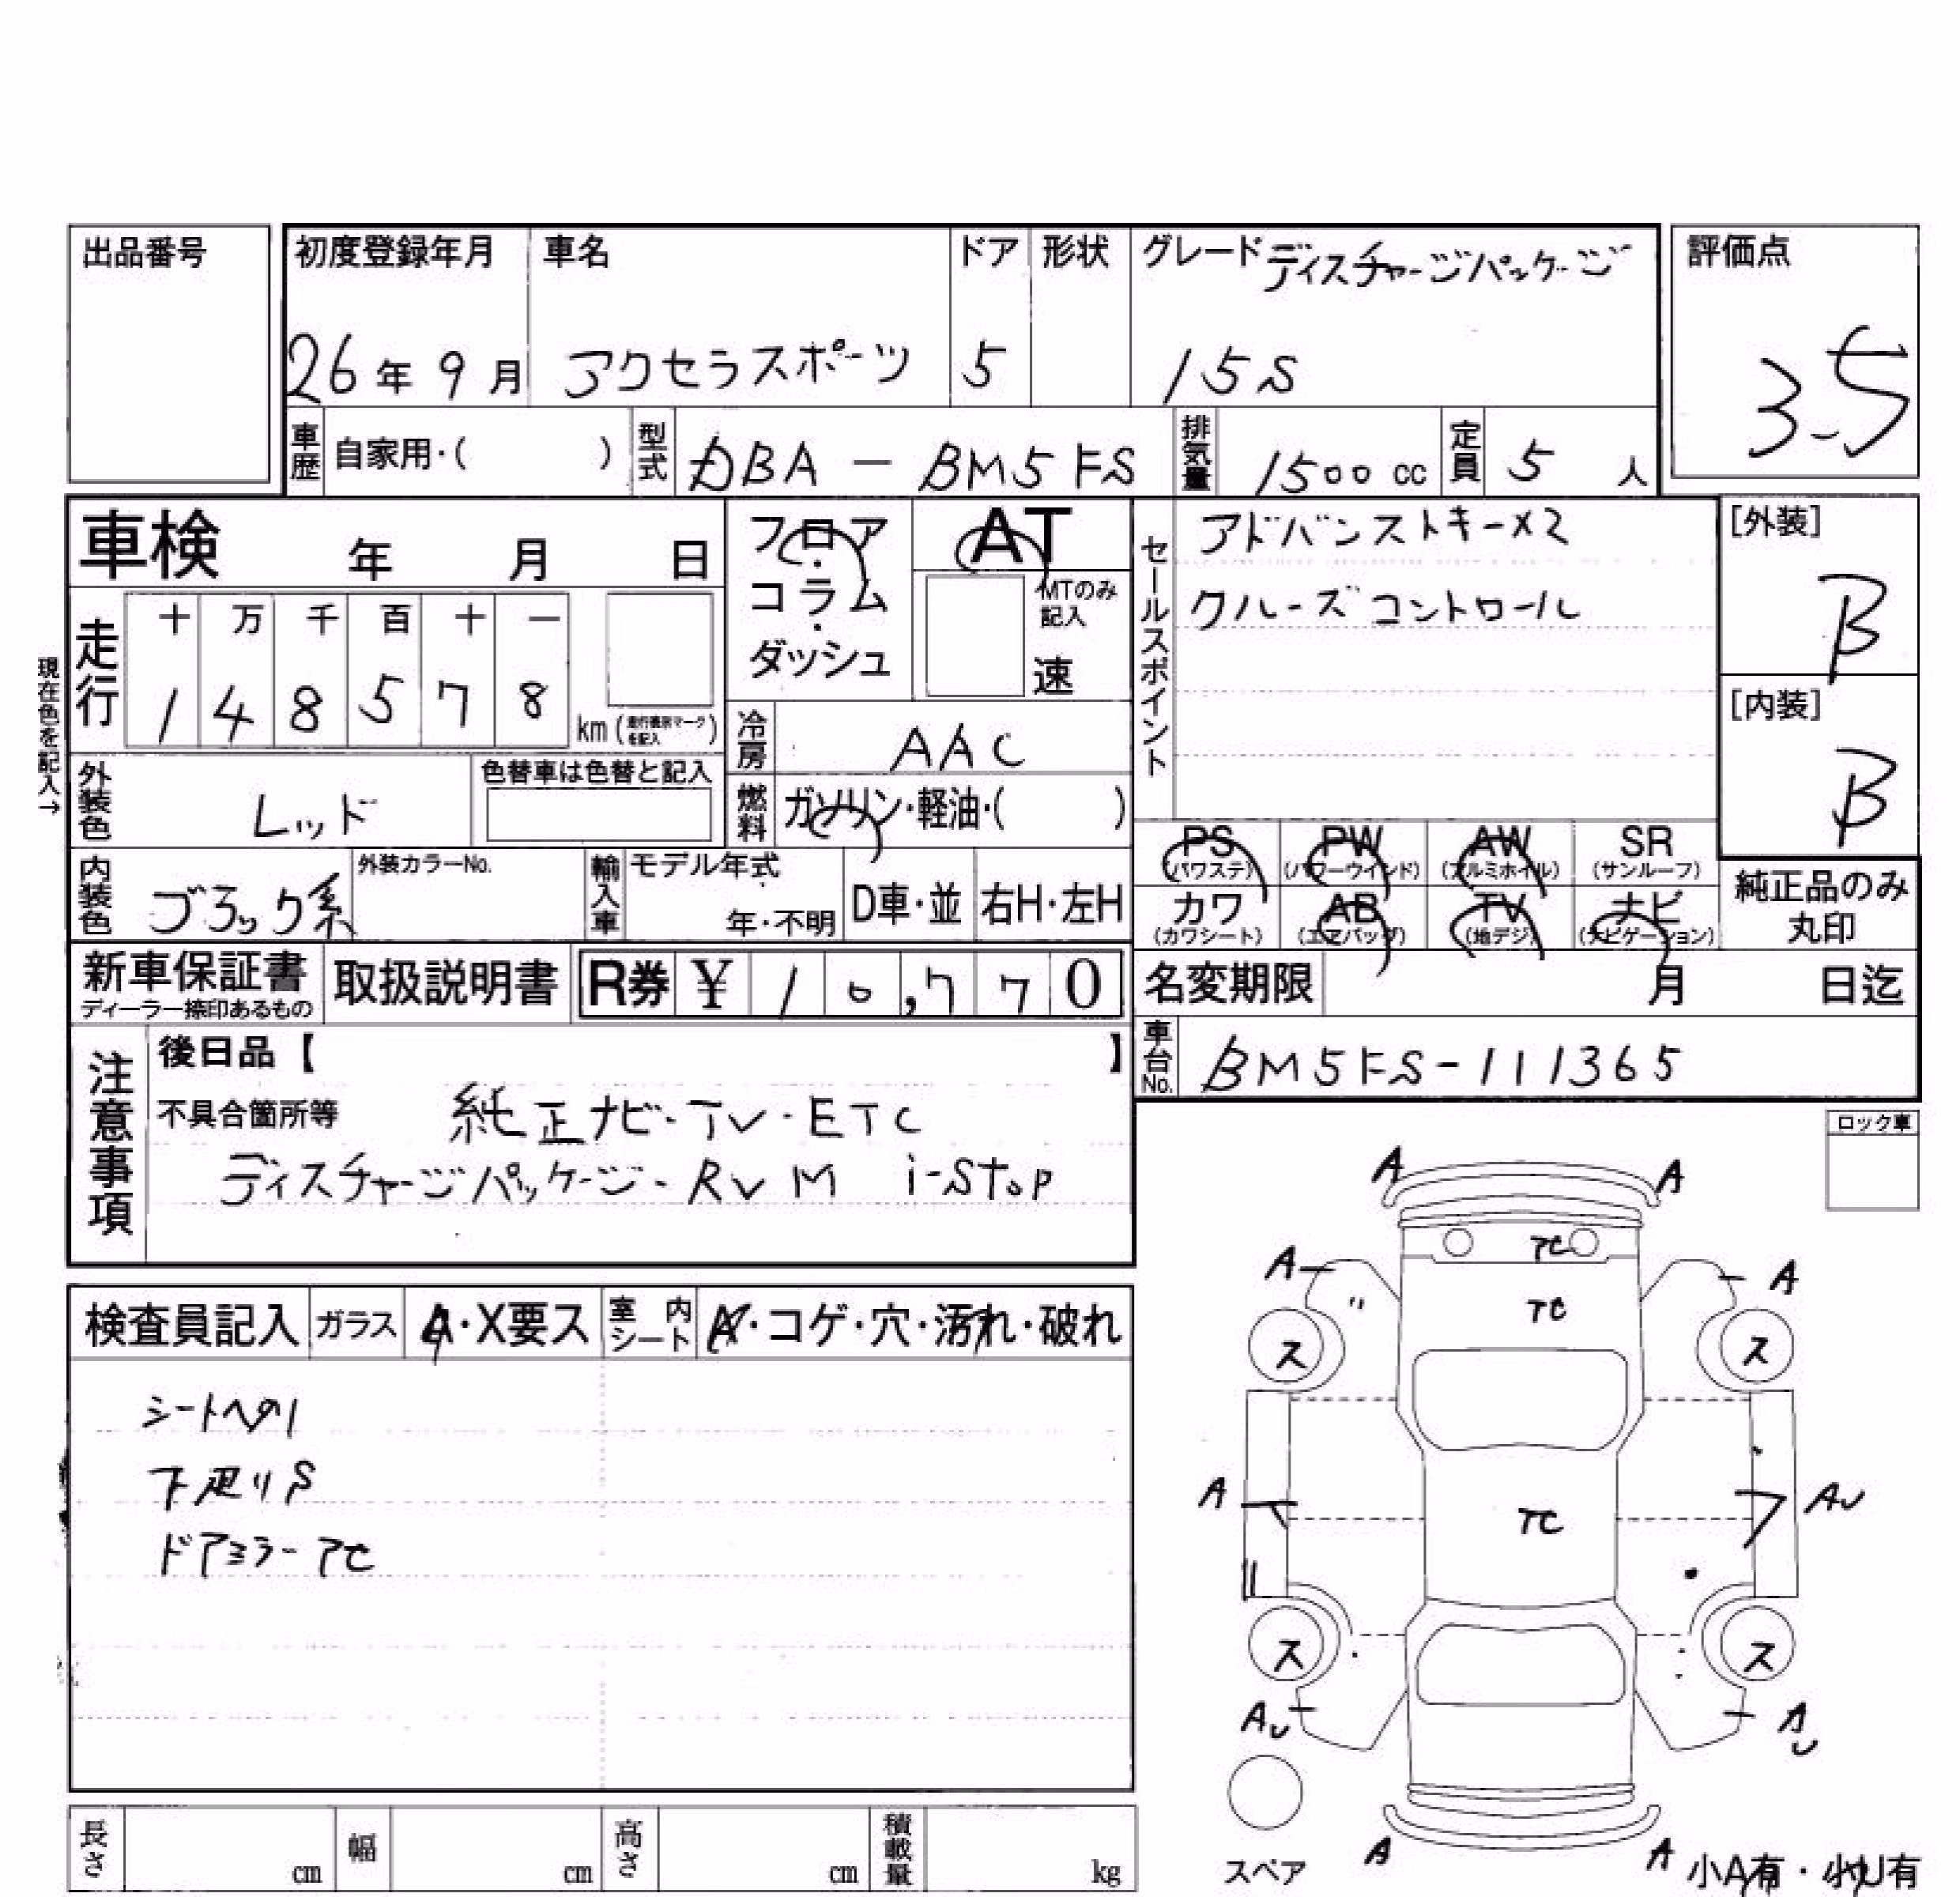 出品番号
初度登録年月 車名 ドア 形状 グレード ディスチャージパッケージ 評価点
26年 9月 アクセラスポーツ 5 15S 3.5
車歴 自家用・( ) 型式 DBA - BM5FS 排気量 1500 cc 定員 5 人
車検 年 月 日
フロア・コラム・ダッシュ
AT
MTのみ記入
速
セールスポイント
アドバンストキーX2
クルーズコントロール
[外装]
B
[内装]
B
現在色を記入→
走行 十 万 千 百 十 一
1 4 8 5 7 8 km (走行表示マークを記入)
冷房 AAC
外装色 レッド 色替車は色替と記入
燃料 ガソリン・軽油・( )
PS (パワステ) PW (パワーウインド) AW (アルミホイル) SR (サンルーフ)
カワ (カワシート) AB (エアバッグ) TV (地デジ) ナビ (ナビゲーション)
純正品のみ
丸印
内装色 ブラック系 外装カラーNo. 輸入車 モデル年式 年・不明 D車・並 右H・左H
新車保証書 取扱説明書 R券 ¥ 1 0,7 7 0
ディーラー捺印あるもの
名変期限 月 日迄
車台No. BM5FS-111365
注意事項
後日品【 】
不具合箇所等 純正ナビ・TV・ETC
ディスチャージパッケージ・RVM i-stop
ロック車
検査員記入 ガラス A・X要ス 室内シート A・コゲ・穴・汚れ・破れ
シートヘタリ
下廻りS
ドアミラーアC
A A
アC
A A
アC
ス ス
A AU
アC
ス ス
AU AU
スペア
A A
小A有・小U有
長さ cm 幅 cm 高さ cm 積載量 kg